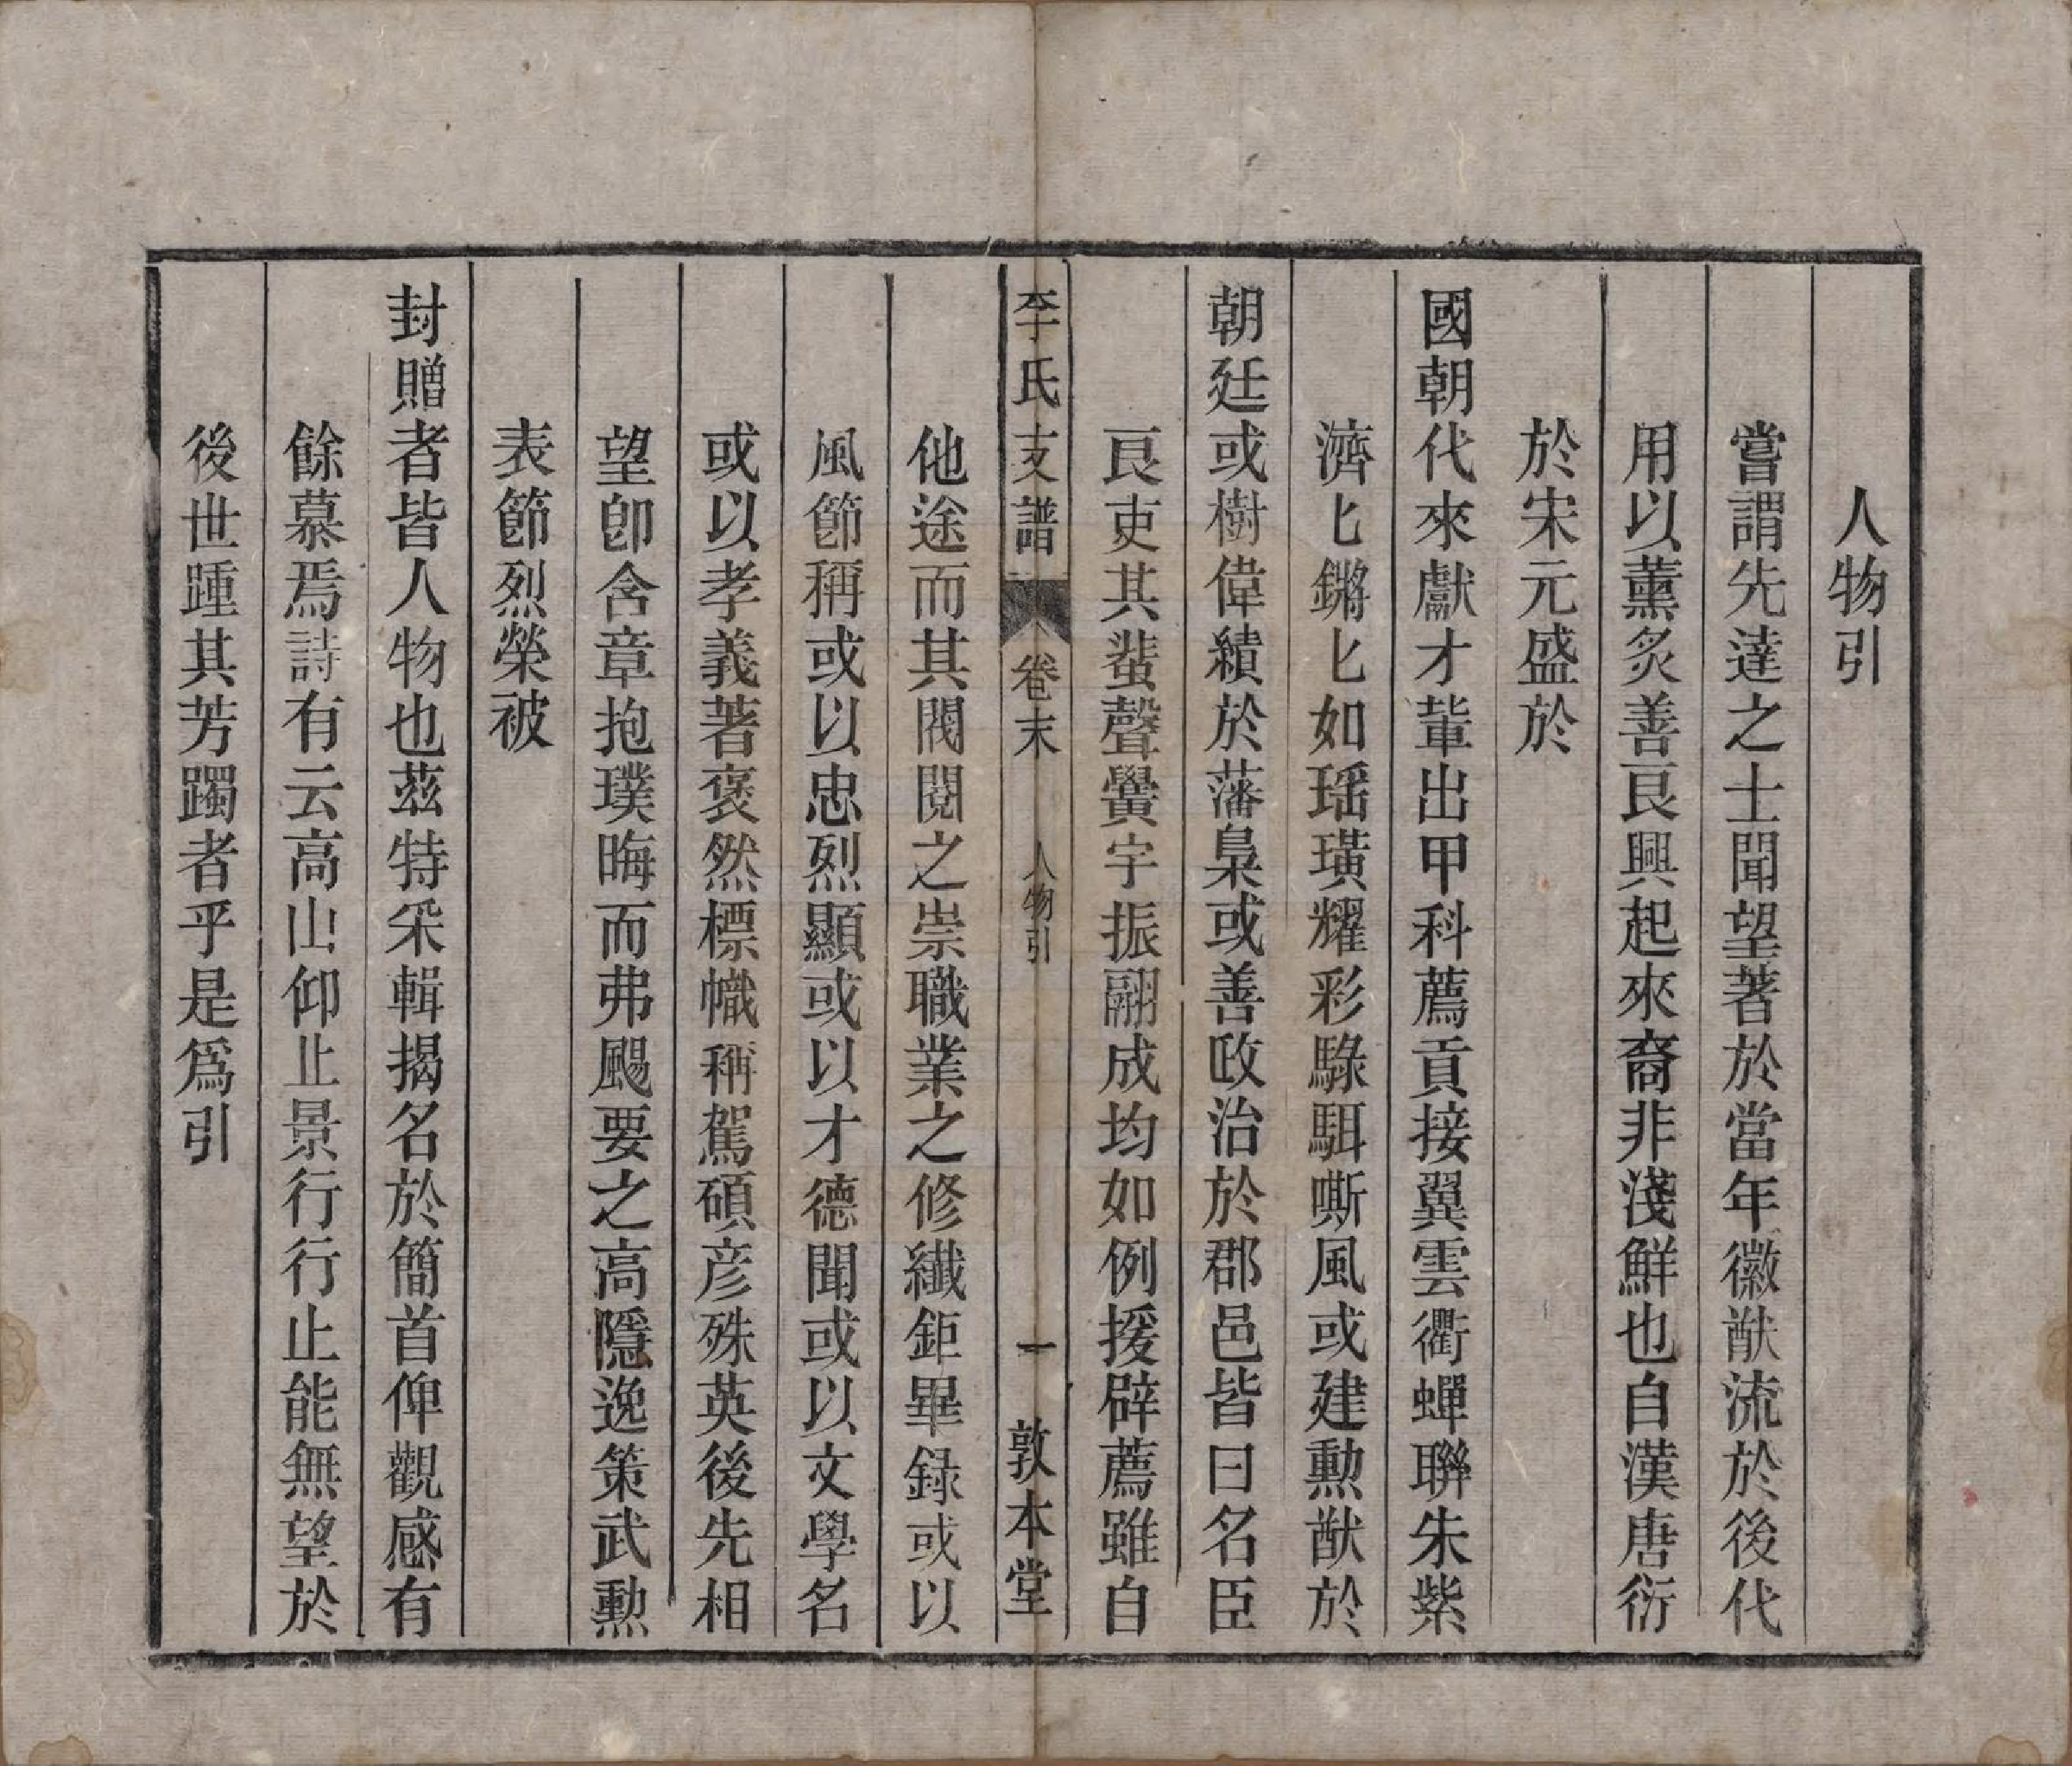 人物引
嘗謂先達之士聞望著於當年徽猷流於後代
用以薰炙善良興起來裔非淺鮮也自漢唐衍
於宋元盛於
國朝代來獻才軰出甲科薦貢接翼雲衢蟬聯朱紫
濟匕鏘匕如瑶璜耀彩騄駬嘶風或建勲猷於
朝廷或樹偉績於藩臬或善政治於郡邑皆曰名臣
良吏其蜚聲黌宇振翮成均如例援辟薦雖自
李氏支譜 卷末 人物引 一 敦本堂
他途而其閥閱之崇職業之修纖鉅畢録或以
風節稱或以忠烈顯或以才德聞或以文學名
或以孝義著褒然標幟稱駕碩彦殊英後先相
望卽含章抱璞晦而弗颺要之高隱逸策武勲
表節烈榮被
封贈者皆人物也茲特采輯揭名於簡首俾觀感有
餘慕焉詩有云高山仰止景行行止能無望於
後世踵其芳躅者乎是爲引